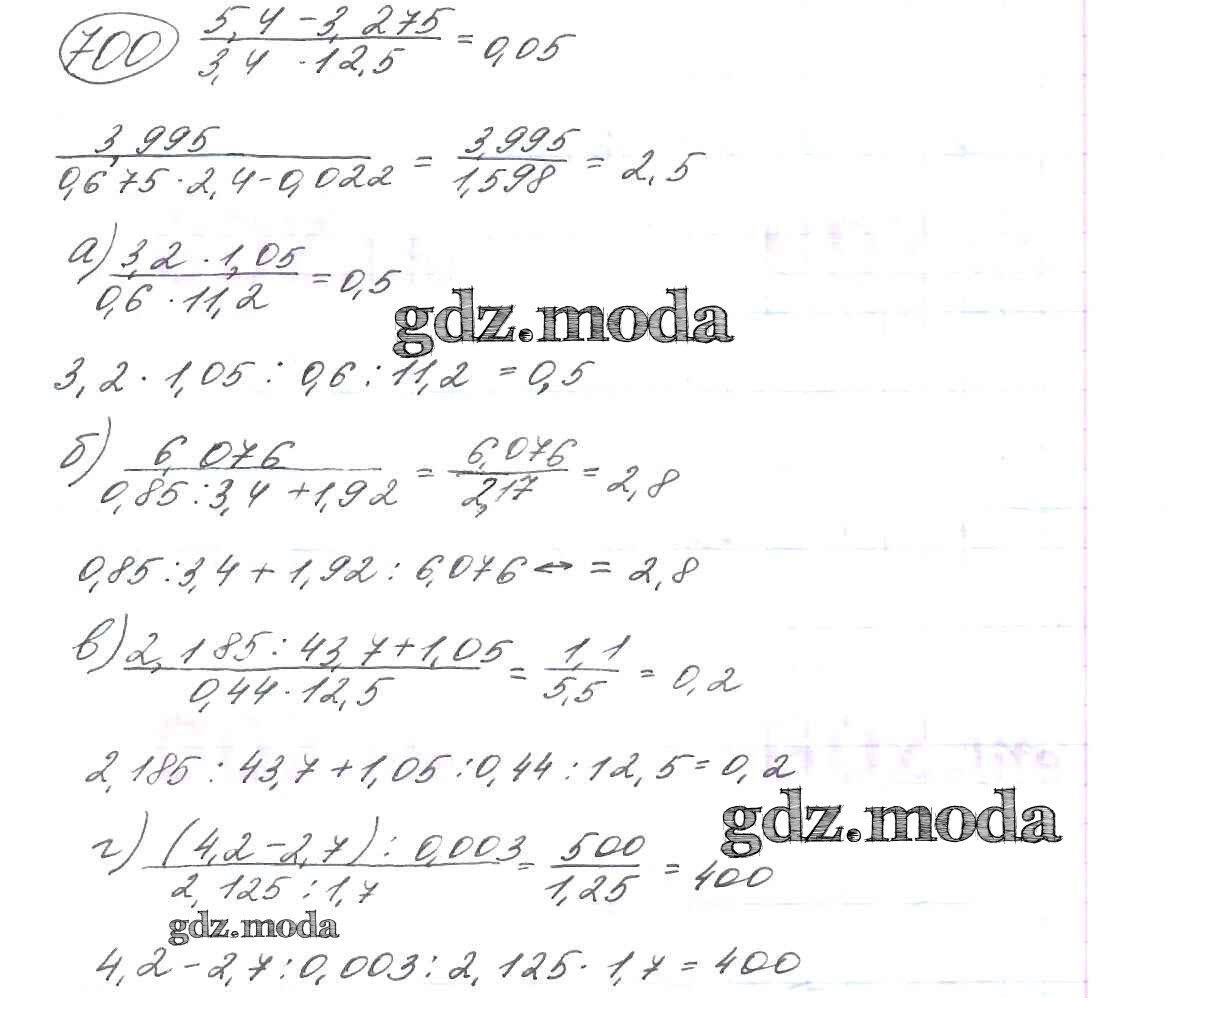 700 (5,4 - 3,275) / (3,4 · 12,5) = 0,05
3,995 / (0,675 · 2,4 - 0,022) = 3,995 / 1,598 = 2,5
а) (3,2 · 1,05) / (0,6 · 11,2) = 0,5
gdz.moda
3,2 · 1,05 : 0,6 : 11,2 = 0,5
б) 6,076 / (0,85 : 3,4 + 1,92) = 6,076 / 2,17 = 2,8
0,85 : 3,4 + 1,92 : 6,076 ↔ = 2,8
в) (2,185 : 43,7 + 1,05) / (0,44 · 12,5) = 1,1 / 5,5 = 0,2
2,185 : 43,7 + 1,05 : 0,44 : 12,5 = 0,2
gdz.moda
г) ((4,2 - 2,7) : 0,003) / (2,125 : 1,7) = 500 / 1,25 = 400
gdz.moda
4,2 - 2,7 : 0,003 : 2,125 · 1,7 = 400